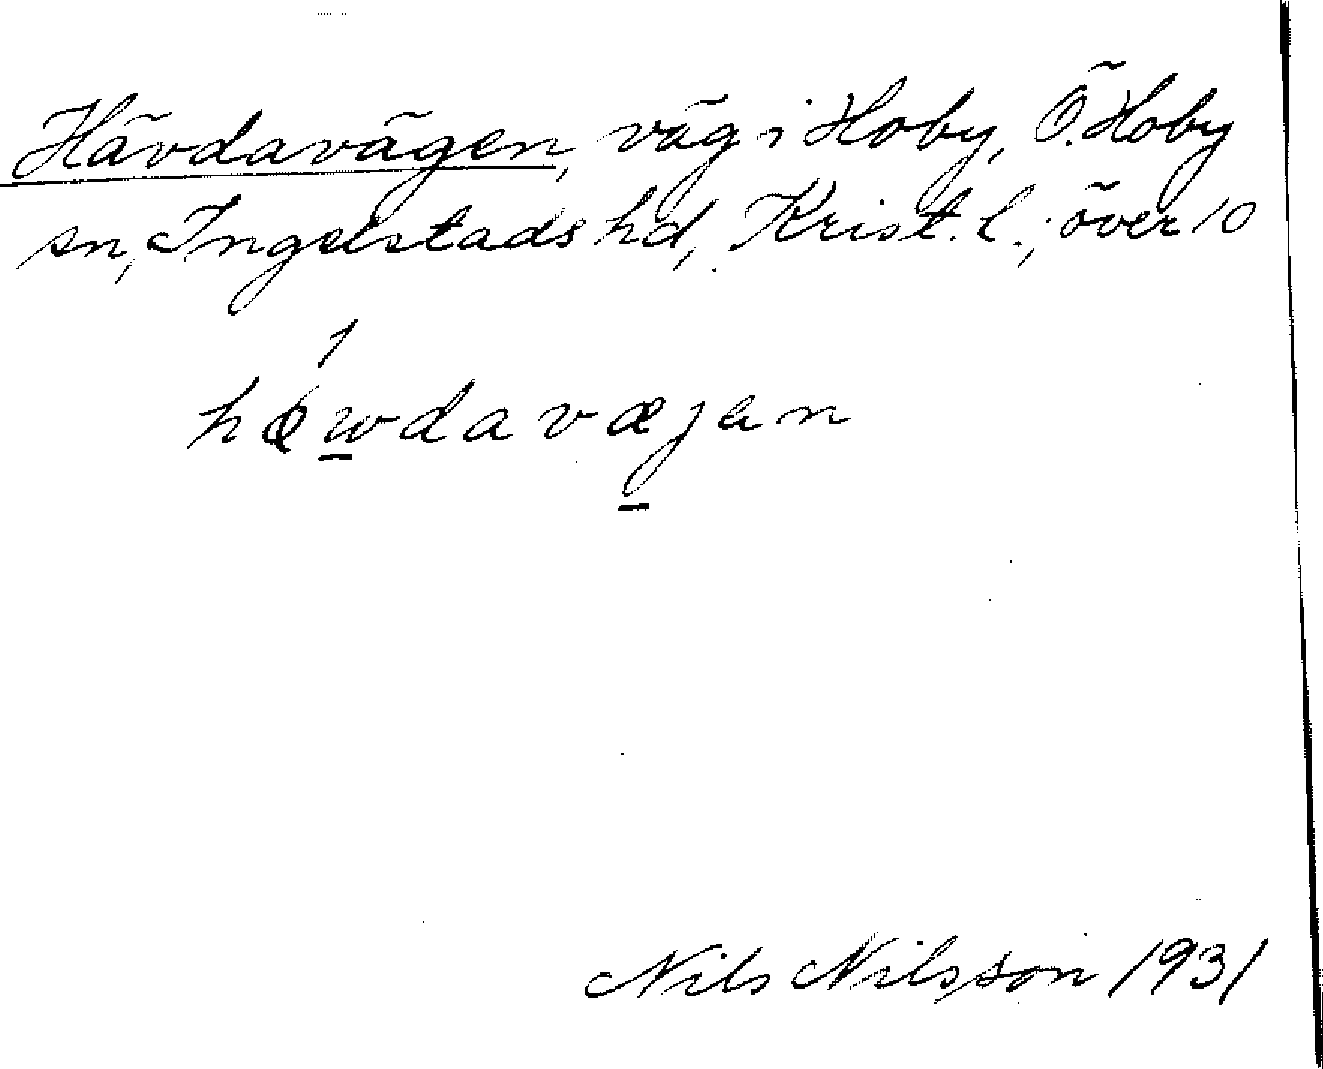 Hävdavägen, väg i Hoby, Ö. Hoby
sn, Ingelstads hd, Krist. l.; över 10
hǿwdavæjen
Nils Nilsson 1931